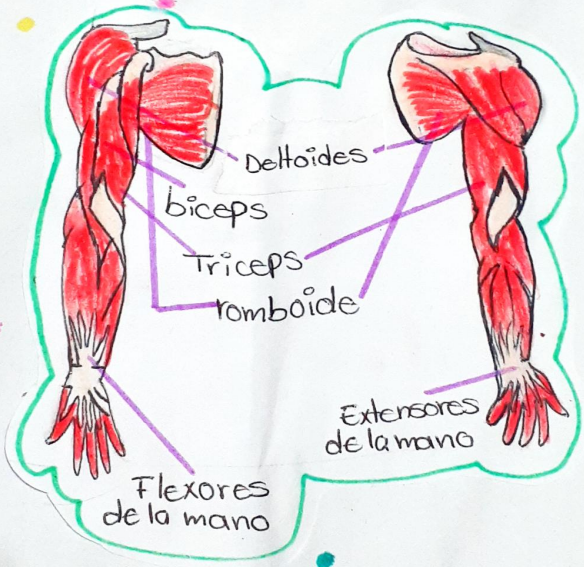 Deltoides
biceps
Triceps
romboide
Extensores
de la mano
Flexores
de la mano